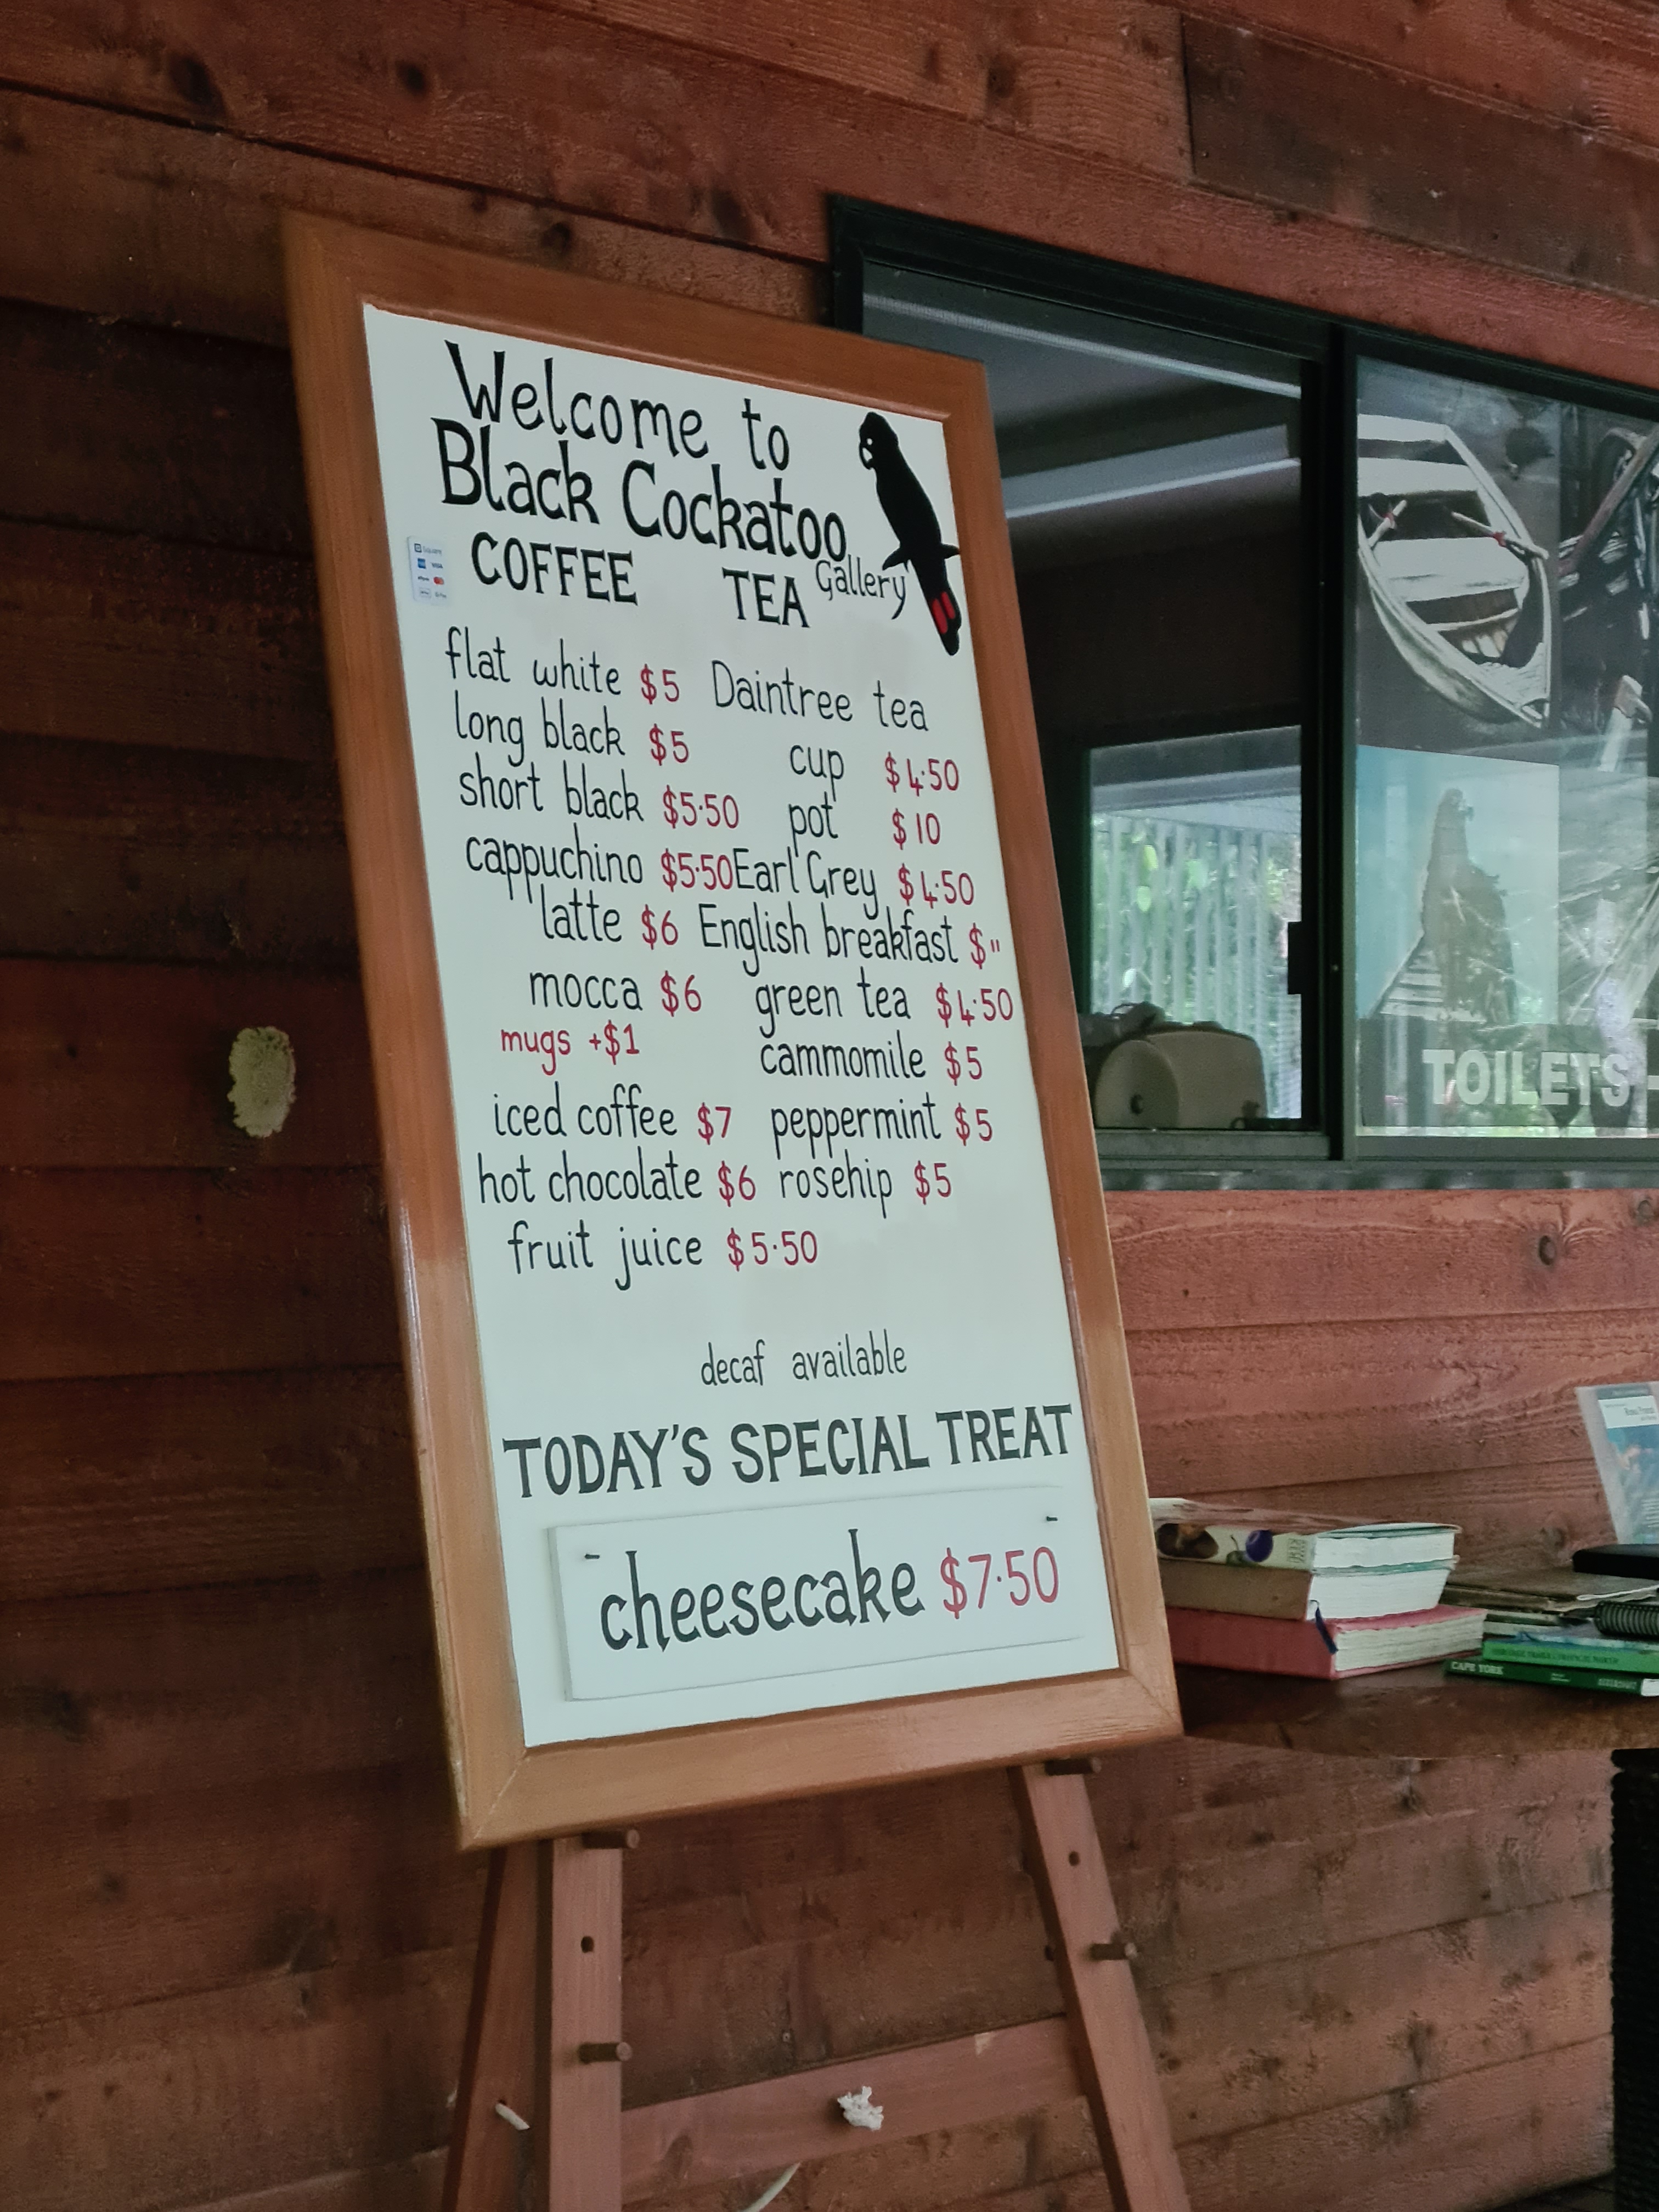 Welcome to
Black Cockatoo
Gallery
COFFEE
flat white $5
long black $5
short black $5·50
cappuchino $5·50
latte $6
mocca $6
mugs +$1
iced coffee $7
hot chocolate $6
fruit juice $5·50
TEA
Daintree tea
cup $4·50
pot $10
Earl Grey $4·50
English breakfast $"
green tea $4·50
cammomile $5
peppermint $5
rosehip $5
decaf available
TODAY'S SPECIAL TREAT
cheesecake $7·50
Square
VISA
TOILETS
CAPE YORK